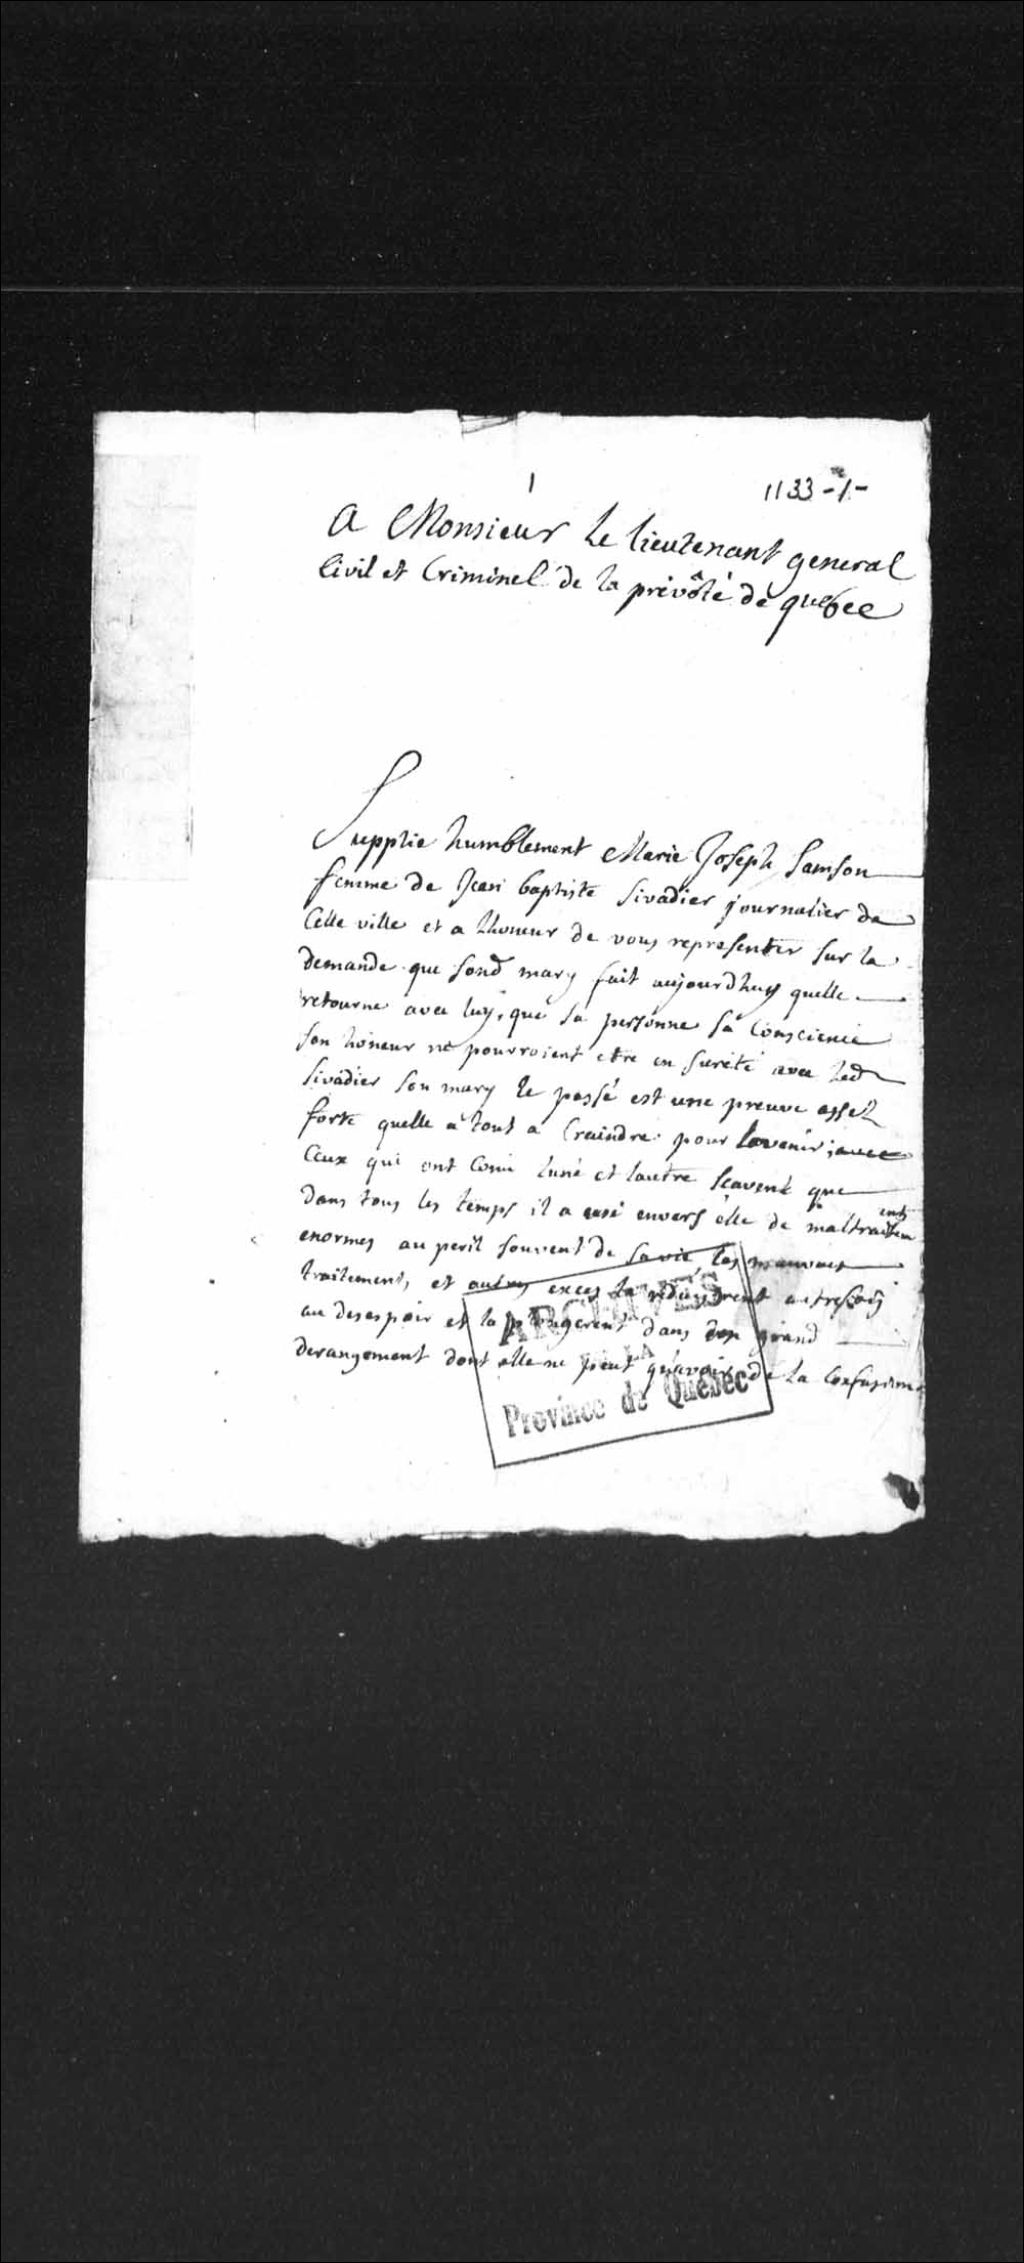 1
1133-1-
A Monsieur Le lieutenant general
Civil et Criminel de la prévôté de quebec
Supplie humblement Marie Joseph Samson
femme de Jean baptiste Sivadier journalier de
Cette ville et a lhoneur de vous representer sur la
demande que sond mary fait aujourdhuy quelle
retourne avec luy, que sa personne sa Conscience
son honeur ne pourroient etre en sureté avec led
Sivadier son mary le passé est une preuve assez
forte quelle a tout a Craindre pour lavenir;
Ceux qui ont Conu luné et lautre scavent que
dans tous les temps il a usé envers elle de maltraitem ents
enormes au peril souvent de sa vie, les mauvais
traitements et autres exces la reduisirent autrefois
au desespoir et la plongerent dans un grand
derangement dont elle ne peut qu'avoir de la Confusion
ARCHIVES
DE LA
Province de Québec